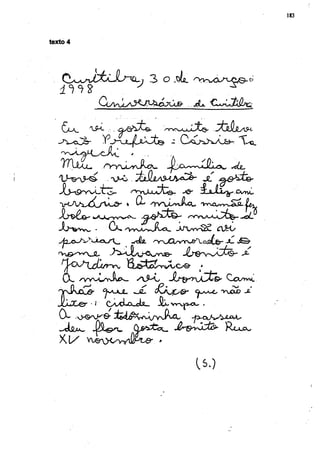 183
texto 4
Curitiba, 30 de março
1998
Aniversário de Curitiba
Eu vi gosto muito telivi
são Prefeito : Cássio Ta
niguchi.
Meu minha família de
vovó vi televisão é gosto
bonito muito o feliz ani
versário. A minha mamãe fez
bolo uma gosto muito de
bom. A minha irmão vei
passear de namorado é o
nome Silvano bonito é
Jardim Botânico.
A minha vei bonito Cami
nhão que é lixo que não é
lixo. cidade limpa.
A vovó passear
deu flor gosta bonito Rua
XV novembro.
(S.)